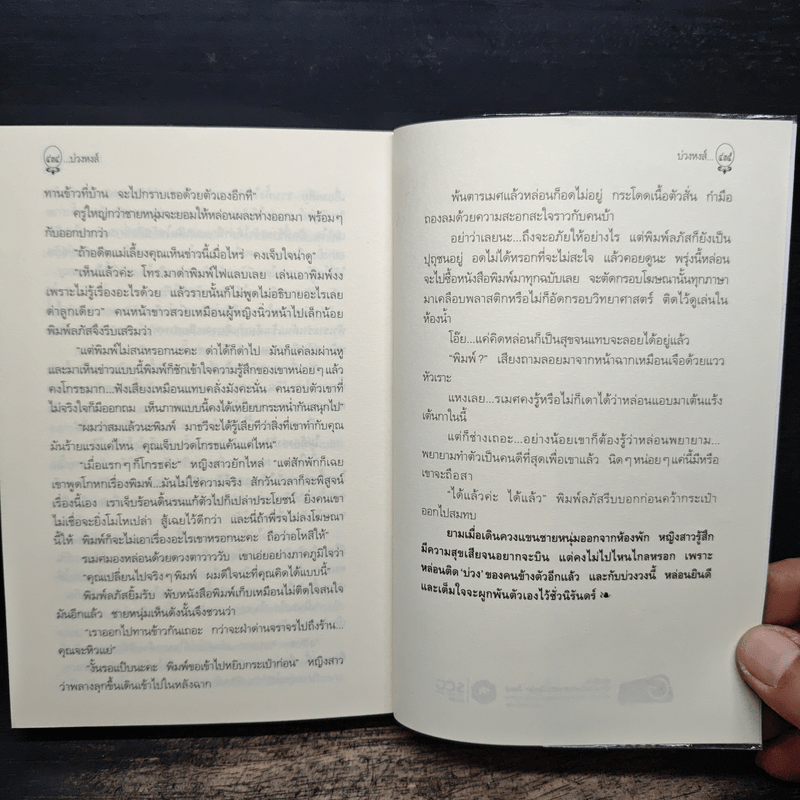 ๔๓๔ ...บ่วงหงส์
ทานข้าวที่บ้าน จะไปกราบเธอด้วยตัวเองอีกที"
ครู่ใหญ่กว่าชายหนุ่มจะยอมให้หล่อนผละห่างออกมา พร้อมๆ
กับออกปากว่า
"ถ้าอดีตแม่เลี้ยงคุณเห็นข่าวนี้เมื่อไหร่ คงเจ็บใจน่าดู"
"เห็นแล้วค่ะ โทร.มาด่าพิมพ์ไฟแลบเลย เล่นเอาพิมพ์งง
เพราะไม่รู้เรื่องอะไรด้วย แล้วรายนั้นก็ไม่พูดไม่อธิบายอะไรเลย
ด่าลูกเดียว" คนหน้าขาวสวยเหมือนผู้หญิงนิ่วหน้าไปเล็กน้อย
พิมพ์ลภัสจึงรีบเสริมว่า
"แต่พิมพ์ไม่สนหรอกนะคะ ด่าได้ก็ด่าไป มันก็แค่ลมผ่านหู
และมาเห็นข่าวแบบนี้พิมพ์ก็ชักเข้าใจความรู้สึกของเขาหน่อยๆ แล้ว
คงโกรธมาก...ฟังเสียงเหมือนแทบคลั่งมังคะนั่น คนรอบตัวเขาที่
ไม่จริงใจก็มีออกถม เห็นภาพแบบนี้คงได้เหยียบกระหน่ำกันสนุกไป"
"ผมว่าสมแล้วนะพิมพ์ มาธวีจะได้รู้เสียทีว่าสิ่งที่เขาทำกับคุณ
มันร้ายแรงแค่ไหน คุณเจ็บปวดโกรธแค้นแค่ไหน"
"เมื่อแรกๆ ก็โกรธค่ะ" หญิงสาวยักไหล่ "แต่สักพักก็เฉย
เขาพูดโกหกเรื่องพิมพ์...มันไม่ใช่ความจริง สักวันเวลาก็จะพิสูจน์
เรื่องนี้เอง เราเจ็บร้อนดิ้นรนแก้ตัวไปก็เปล่าประโยชน์ ยิ่งคนเขา
ไม่เชื่อจะยิ่งโมโหเปล่า สู้เฉยไว้ดีกว่า และนี่ถ้าพี่รจไม่ลงโฆษณา
นี้ให้ พิมพ์ก็จะไม่เอาเรื่องอะไรเขาหรอกนะคะ ถือว่าอโหสิให้"
รเมศมองหล่อนด้วยดวงตาวาววับ เขาเอ่ยอย่างภาคภูมิใจว่า
"คุณเปลี่ยนไปจริงๆ พิมพ์ ผมดีใจนะที่คุณคิดได้แบบนี้"
พิมพ์ลภัสยิ้มรับ พับหนังสือพิมพ์เก็บเหมือนไม่ติดใจสนใจ
มันอีกแล้ว ชายหนุ่มเห็นดังนั้นจึงชวนว่า
"เราออกไปทานข้าวกันเถอะ กว่าจะฝ่าด่านจราจรไปถึงร้าน...
คุณจะหิวแย่"
"งั้นรอแป๊บนะคะ พิมพ์ขอเข้าไปหยิบกระเป๋าก่อน" หญิงสาว
ว่าพลางลุกขึ้นเดินเข้าไปในหลังฉาก
บ่วงหงส์... ๔๓๕
พ้นตารเมศแล้วหล่อนก็อดไม่อยู่ กระโดดเนื้อตัวสั่น กำมือ
ถองลมด้วยความสะอกสะใจราวกับคนบ้า
อย่าว่าเลยนะ...ถึงจะอภัยให้อย่างไร แต่พิมพ์ลภัสก็ยังเป็น
ปุถุชนอยู่ อดไม่ได้หรอกที่จะไม่สะใจ แล้วคอยดูนะ พรุ่งนี้หล่อน
จะไปซื้อหนังสือพิมพ์มาทุกฉบับเลย จะตัดกรอบโฆษณานั้นทุกภาษา
มาเคลือบพลาสติกหรือไม่ก็อัดกรอบวิทยาศาสตร์ ติดไว้ดูเล่นใน
ห้องน้ำ
โอ๊ย...แค่คิดหล่อนก็เป็นสุขจนแทบจะลอยได้อยู่แล้ว
"พิมพ์?" เสียงถามลอยมาจากหน้าฉากเหมือนเจือด้วยแวว
หัวเราะ
แหงเลย...รเมศคงรู้หรือไม่ก็เดาได้ว่าหล่อนแอบมาเต้นแร้ง
เต้นกาในนี้
แต่ก็ช่างเถอะ...อย่างน้อยเขาก็ต้องรู้ว่าหล่อนพยายาม...
พยายามทำตัวเป็นคนดีที่สุดเพื่อเขาแล้ว นิดๆ หน่อยๆ แค่นี้มีหรือ
เขาจะถือสา
"ได้แล้วค่ะ ได้แล้ว" พิมพ์ลภัสรีบบอกก่อนคว้ากระเป๋า
ออกไปสมทบ
ยามเมื่อเดินควงแขนชายหนุ่มออกจากห้องพัก หญิงสาวรู้สึก
มีความสุขเสียจนอยากจะบิน แต่คงไม่ไปไหนไกลหรอก เพราะ
หล่อนติด 'บ่วง' ของคนข้างตัวอีกแล้ว และกับบ่วงวงนี้ หล่อนยินดี
และเต็มใจจะผูกพันตัวเองไว้ชั่วนิรันดร์